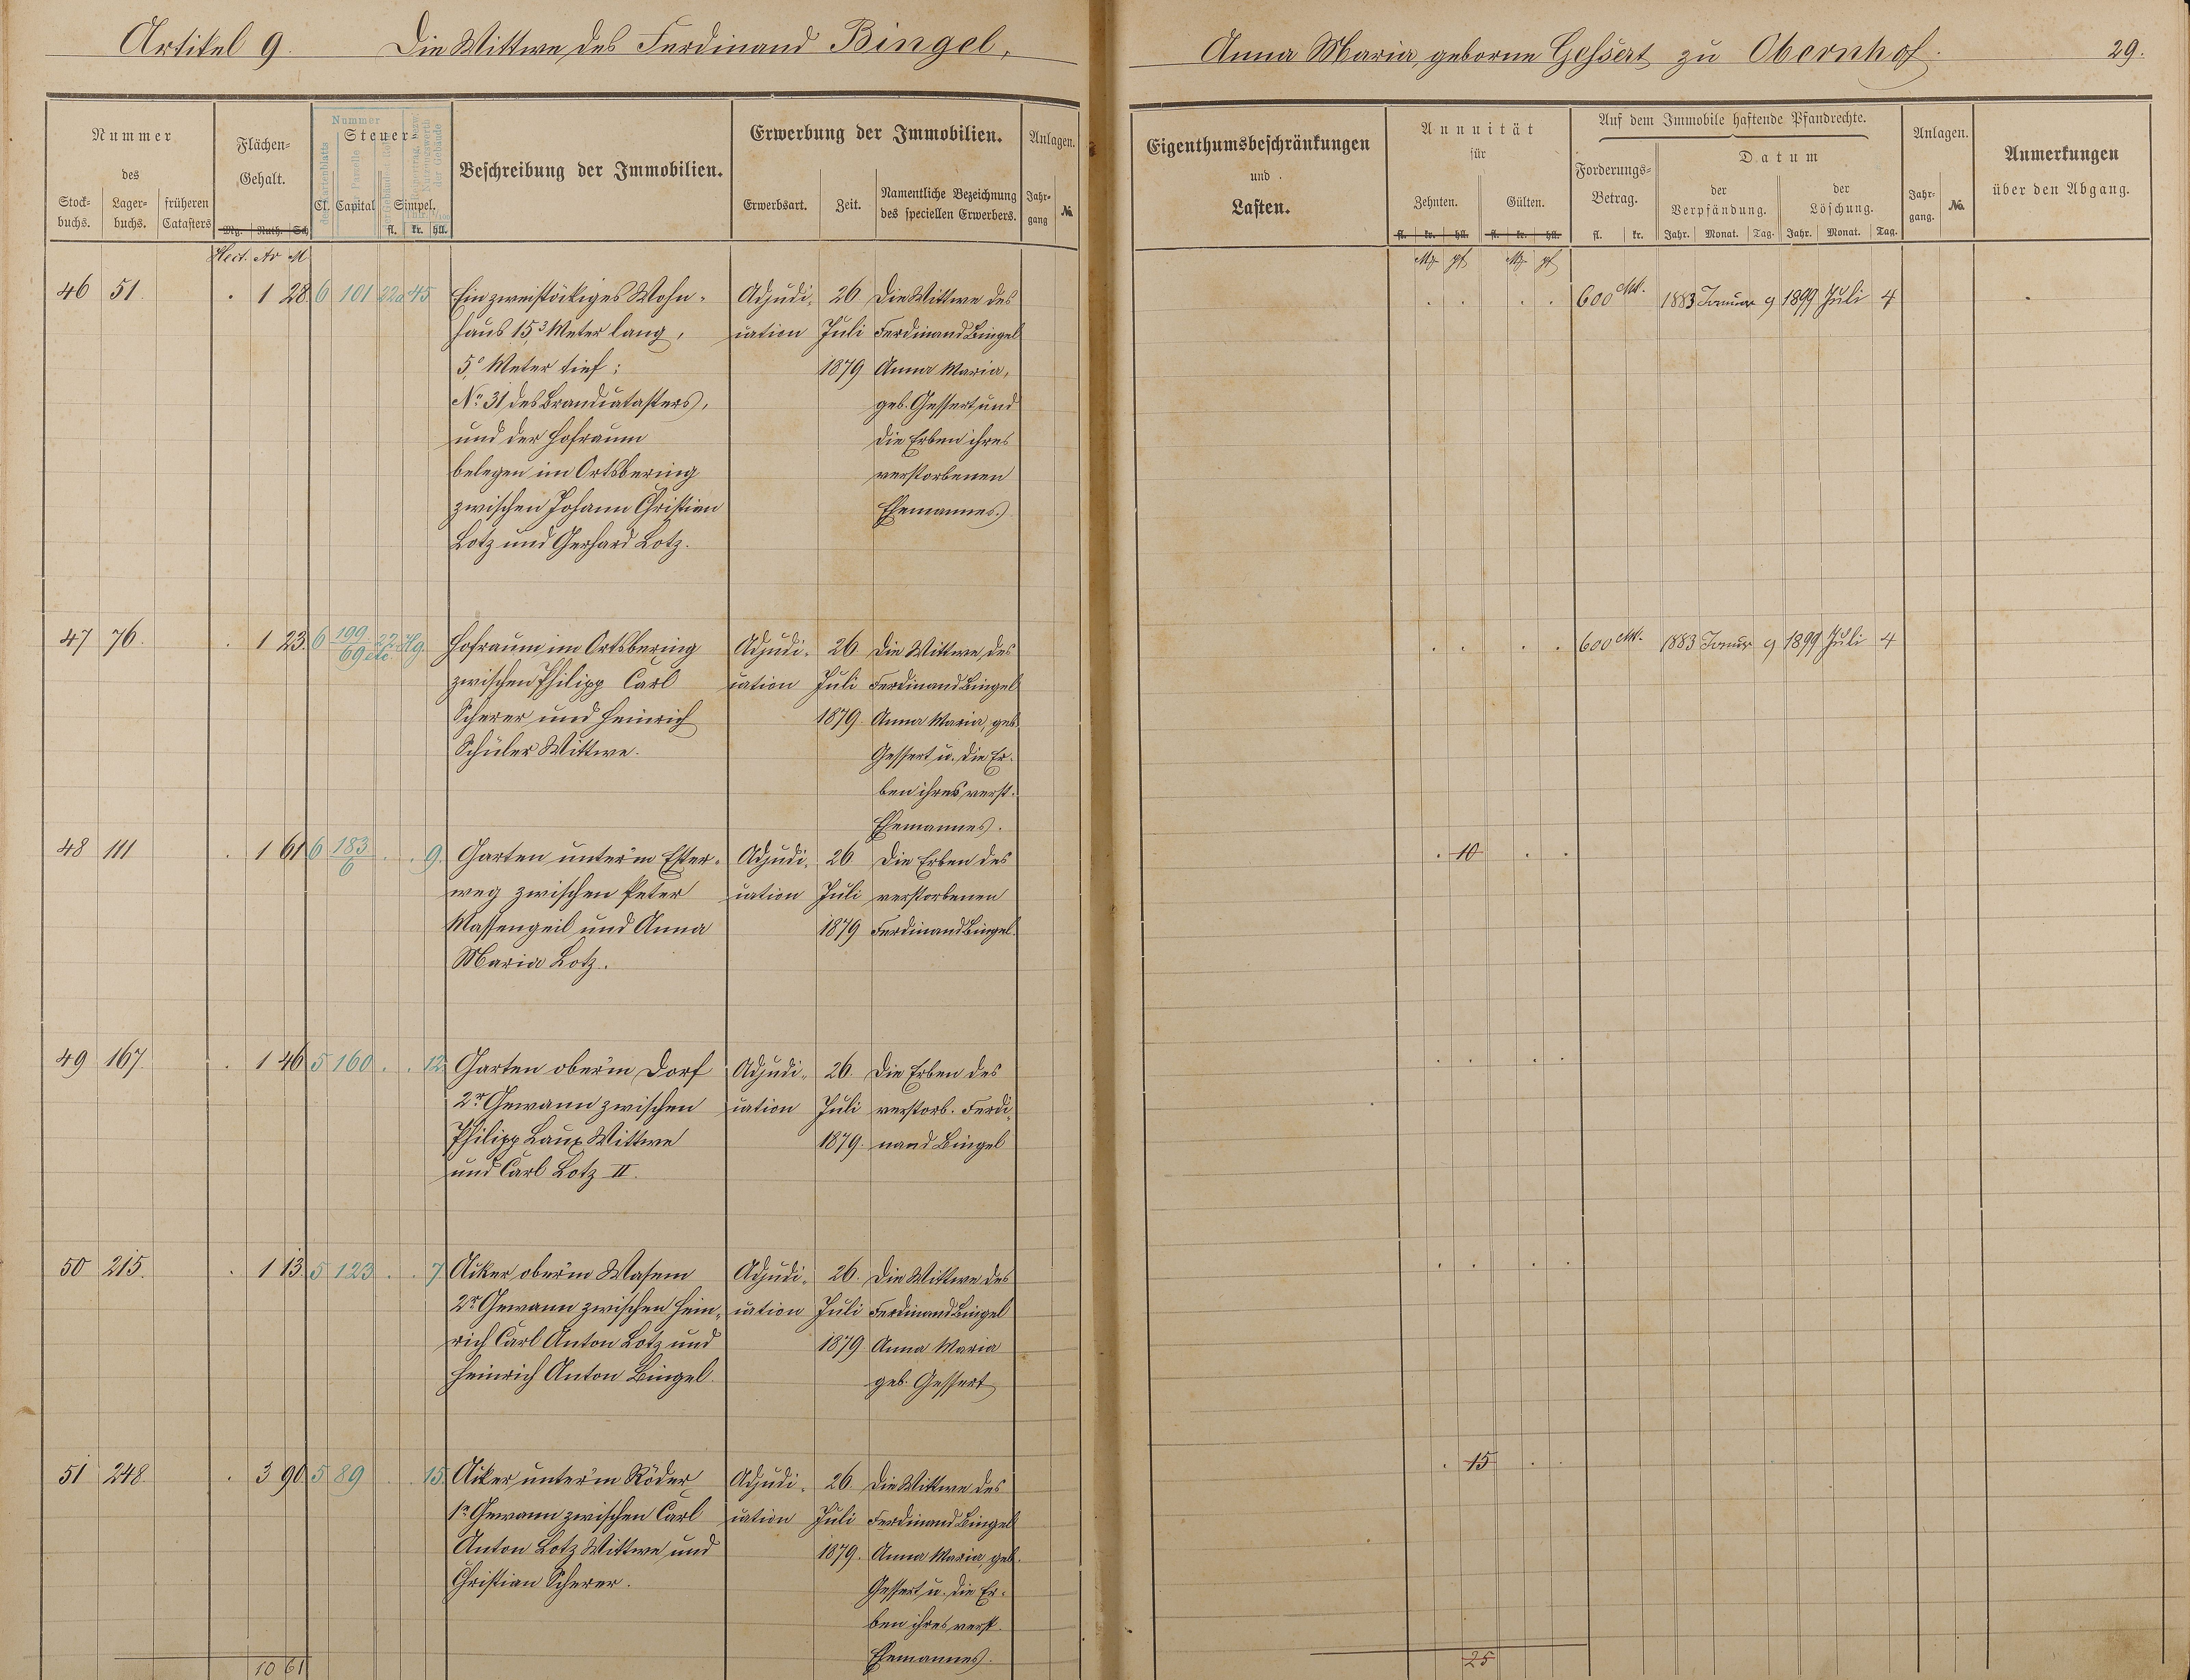 Artikel 9. Die Wittwe des Ferdinand Bingel,
Anna Maria, geborne Geßert zu Obernhof. 29.
Nummer
des
Stock-
buchs.
Lager-
buchs.
früheren
Catasters
Flächen-
Gehalt.
Mg. Ruth. Sch
Hect. Ar M
Nummer
Steuer-
des Kartenblatts
Parcelle
Cl. Capital Simpel.
fl. kr. hll.
Beschreibung der Immobilien.
Erwerbung der Immobilien.
Erwerbsart. Zeit.
Namentliche Bezeichnung
des speciellen Erwerbers.
Anlagen.
Jahr-
gang
No.
Eigenthumsbeschränkungen
und
Lasten.
Annuität
für
Zehnten. Gülten.
fl. kr. hll. fl. kr. hll.
Mg pf Mg pf
Auf dem Immobile haftende Pfandrechte.
Forderungs-
Betrag.
fl. kr.
Datum
der
Verpfändung.
der
Löschung.
Jahr. Monat. Tag. Jahr. Monat. Tag.
Anlagen.
Jahr-
gang.
No.
Anmerkungen
über den Abgang.
46 51. . 1 28 6 101 22a 45 Ein zweistöckiges Wohn- Adjudi- 26 Die Wittwe des . . . . 600 M. 1883 Januar 9 1899 Juli 4
haus 15,3 Meter lang, cation Juli Ferdinand Bingel
5,0 Meter tief; 1879 Anna Maria,
No. 31 des Brandcatasters, geb. Gessert und
und der Hofraum die Erben ihres
belegen im Ortsbering verstorbenen
zwischen Johann Christian Ehemannes.
Lotz und Gerhard Lotz.
47 76. . 1 23. 6 199/69 etc. 22 Hg. Hofraum im Ortsbering Adjudi- 26 Die Wittwe des . . . . 600 M. 1883 Januar 9 1899 Juli 4
zwischen Philipp Carl cation Juli Ferdinand Bingel
Scherer und Heinrich 1879 Anna Maria, geb.
Schüler Wittwe. Gessert u. die Er-
ben ihres verst.
Ehemannes.
48 111 . 1 61 6 183/6 . . 9. Garten unterm Ester- Adjudi- 26 Die Erben des . 10 . .
weg zwischen Peter cation Juli verstorbenen
Massengeil und Anna 1879 Ferdinand Bingel.
Maria Lotz.
49 167. . 1 46 5 160 . . 12 Garten ober'm Dorf Adjudi- 26. Die Erben des . . . .
2r Gewann zwischen cation Juli verstorb. Ferdi-
Philipp Laux Wittwe 1879. nand Bingel
und Carl Lotz II.
50 215. . 1 13 5 123 . . 7 Acker ober'm Wasem Adjudi- 26. Die Wittwe des . . . .
2r Gewann zwischen Hein- cation Juli Ferdinand Bingel
rich Carl Anton Lotz und 1879 Anna Maria
Heinrich Anton Bingel. geb. Gessert
51 248. . 3 90 5 89 . . 15. Acker unter'm Röder Adjudi- 26. Die Wittwe des . 15 . .
1r Gewann zwischen Carl cation Juli Ferdinand Bingel
Anton Lotz Wittwe und 1879. Anna Maria, geb.
Christian Scherer. Gessert u. die Er-
ben ihres verst.
Ehemannes.
10 61 25